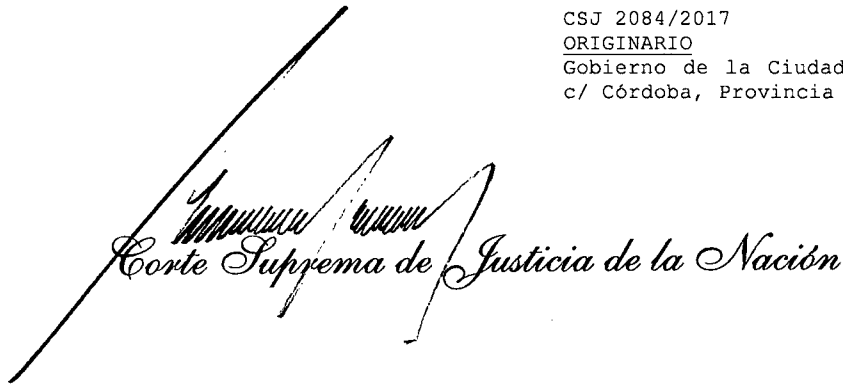 CSJ 2084/2017
ORIGINARIO
Gobierno de la Ciudad
c/ Córdoba, Provincia
Corte Suprema de Justicia de la Nación